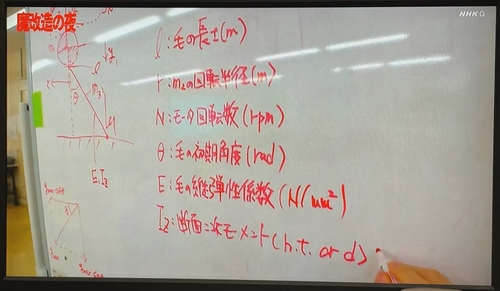 魔改造の夜
NHK G
l:毛の長さ(m)
r:m₂の回転半径(m)
N:モータ回転数(rpm)
θ:毛の初期角度(rad)
E:毛の縦弾性係数(N/mm²)
Iz:断面二次モーメント(h.t. or d)
θ
l
m₃
E, Iz